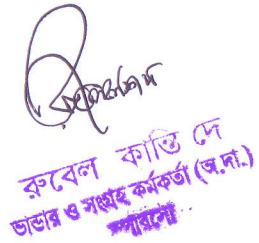 রুবেল কান্তি দে
ভান্ডার ও সংগ্রহ কর্মকর্তা (অ.দা.)